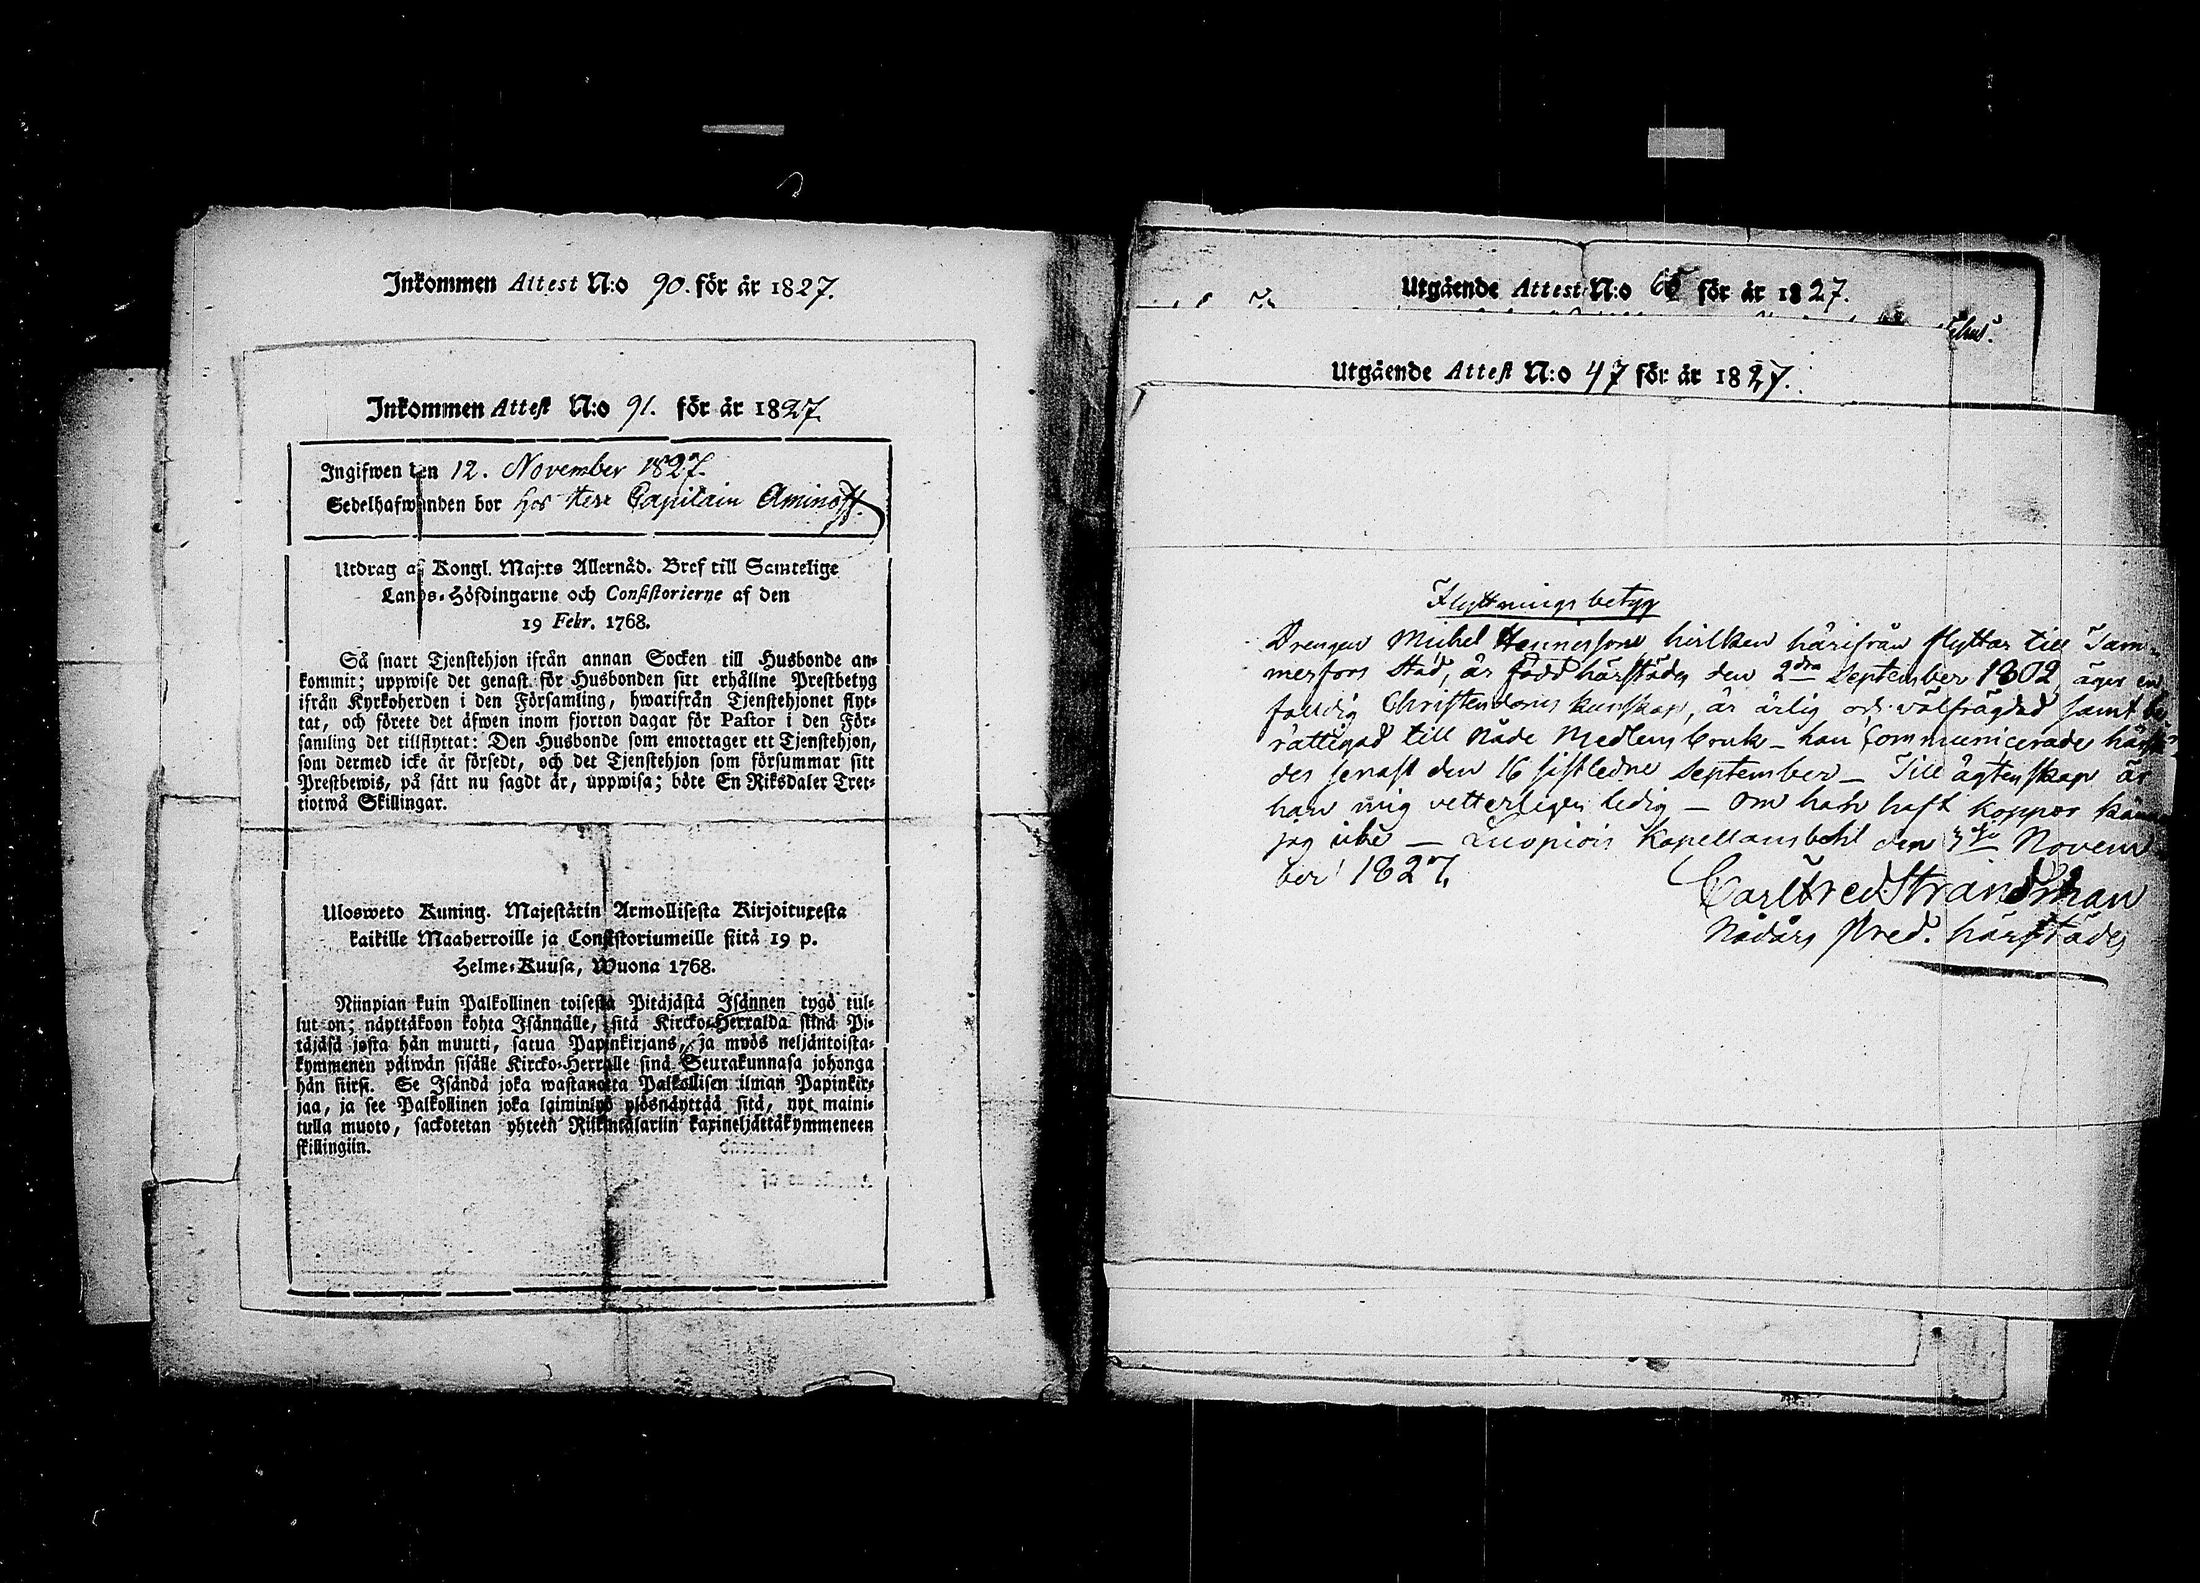 Inkommen Attest N:o 90. för år 1827.
Inkommen Attest N:o 91. för år 1827
Ingifwen den 12. November 1827.
Sedelhafwanden bor hos Herr Capitain Aminoff.
Utdrag af Kongl. Maj:ts Allernåd. Bref till Samtelige
Lands-Höfdingarne och Consistorierne af den
19 Febr. 1768.
Så snart Tjenstehjon ifrån annan Socken till Husbonde an-
kommit; uppwise det genast för Husbonden sitt erhållne Prestbetyg
ifrån Kyrkoherden i den Församling, hwarifrån Tjenstehjonet flyt-
tat, och förete det äfwen inom fjorton dagar för Pastor i den För-
samling det tillflyttat: Den Husbonde som emottager ett Tjenstehjon,
som dermed icke är försedt, och det Tjenstehjon som försummar sitt
Prestbewis, på sätt nu sagdt är, uppwisa; böte En Riksdaler Tret-
tiotwå Skillingar.
Ulosweto Kuning. Majestätin Armollisesta Kirjoituxesta
kaikille Maaherroille ja Consistoriumeille siitä 19 p.
Helme-Kuusa, Wuona 1768.
Niinpian kuin Palkollinen toisesta Pitäjästä Isännen tygö tul-
lut on; näyttäkoon kohta Isännälle, sitä Kircko-Herralda siinä Pi-
täjäsä josta hän muutti, satua Papinkirjans, ja myös neljäntoista-
kymmenen päiwän sisälle Kircko-Herralle sinä Seurakunnasa johonga
hän siirsi. Se Isändä joka wastanotta Palkollisen ilman Papinkir-
jaa, ja see Palkollinen joka laiminlyö ylösnäyttää sitä, nyt maini-
tulla muoto, sackotetan yhteen Riikintalariin kaxineljättäkymmeneen
skillingiin.
Utgående Attest N:o 65 för år 1827.
Utgående Attest N:o 47 för år 1827.
Flyttningsbetyg
Drengen Michel Hennersson, hvilken härifrån flyttar till Tam-
merfors Stad, är född härstädes den 2dra September 1802, äger en
faldig Christendoms kunskap, är ärlig och välfrägdad samt be
rättigad till Nåde Medlens bruk - han Communicerade härstä
des senast den 16 sistledne September - Till ägtenskap är
han mig vetterligen ledig - om han haft koppor känner
jag icke - Luopiois Kapellansbohl den Novem
ber 1827.
Carl Fred Strandman
Nådårs Pred. härstädes